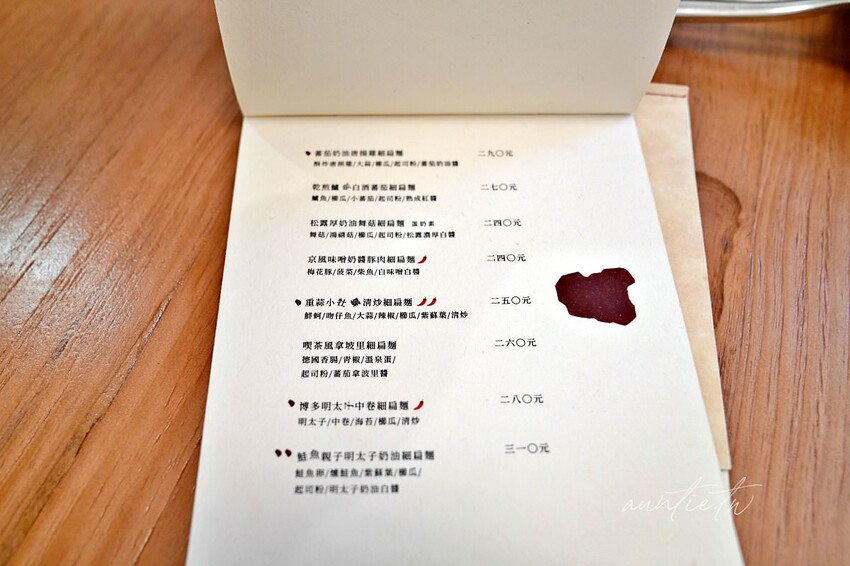 蕃茄奶油唐揚雞細扁麵 二九〇元
酥炸唐揚雞/大蒜/櫛瓜/起司粉/蕃茄奶油醬
乾煎鱸 白酒蕃茄細扁麵 二七〇元
鱸魚/櫛瓜/小蕃茄/起司粉/熟成紅醬
松露厚奶油舞菇細扁麵 蛋奶素 二四〇元
舞菇/鴻禧菇/櫛瓜/起司粉/松露濃厚白醬
京風味噌奶醬豚肉細扁麵 二四〇元
梅花豚/菠菜/柴魚/白味噌白醬
重蒜小卷 清炒細扁麵 二五〇元
鮮蚵/吻仔魚/大蒜/辣椒/櫛瓜/紫蘇葉/清炒
喫茶風拿坡里細扁麵 二六〇元
德國香腸/青椒/溫泉蛋/
起司粉/蕃茄拿坡里醬
博多明太子中卷細扁麵 二八〇元
明太子/中卷/海苔/櫛瓜/清炒
鮭魚親子明太子奶油細扁麵 三一〇元
鮭魚卵/燻鮭魚/紫蘇葉/櫛瓜/
起司粉/明太子奶油白醬
auntie.tw